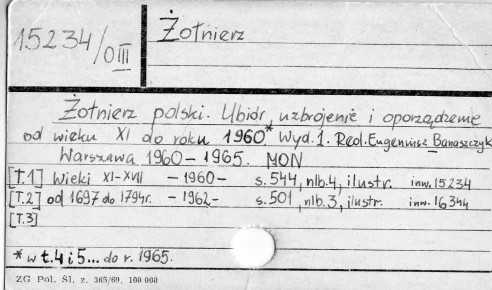 15234/OIII
Żołnierz
Żołnierz polski. Ubiór, uzbrojenie i oporządzenie
od wieku XI do roku 1960* Wyd. 1. Red. Eugeniusz Banaszczyk
Warszawa 1960-1965. MON
[T.1] Wieki XI-XVII - 1960 - s. 544, nlb. 4, ilustr. inw. 15234
[T.2] od 1697 do 1794r. - 1962 - s. 501, nlb. 3, ilustr. inw. 16344
[T.3]
* w t. 4 i 5... do r. 1965.
ZG Pol. Śl. z. 365/69. 100 000